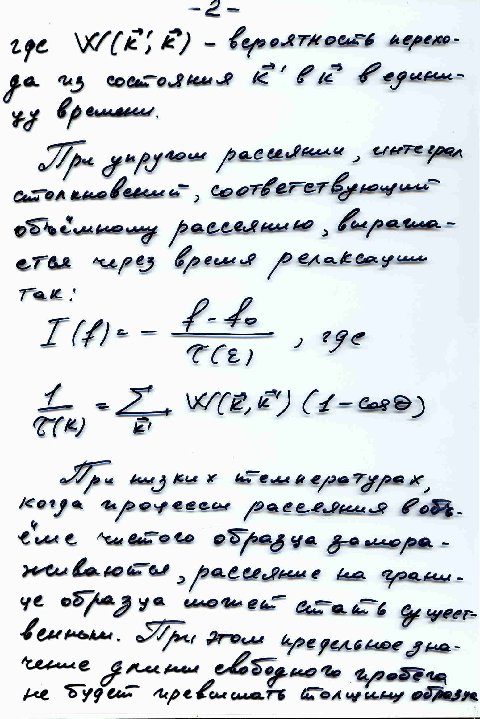 -2-
где W(k⃗', k⃗) - вероятность перехо-
да из состояния k⃗' в k⃗ в едини-
цу времени.
При упругом рассеянии, интеграл
столкновений, соответствующий
объёмному рассеянию, выража-
ется через время релаксации
так:
I(f) = - (f - f₀) / τ(ε) , где
1/τ(k) = Σ_k⃗' W(k⃗, k⃗') (1 - cosθ)
При низких температурах,
когда процессы рассеяния в объ-
ёме чистого образца замора-
живаются, рассеяние на грани-
це образца может стать сущест-
венным. При этом предельное зна-
чение длины свободного пробега
не будет превышать толщину образца